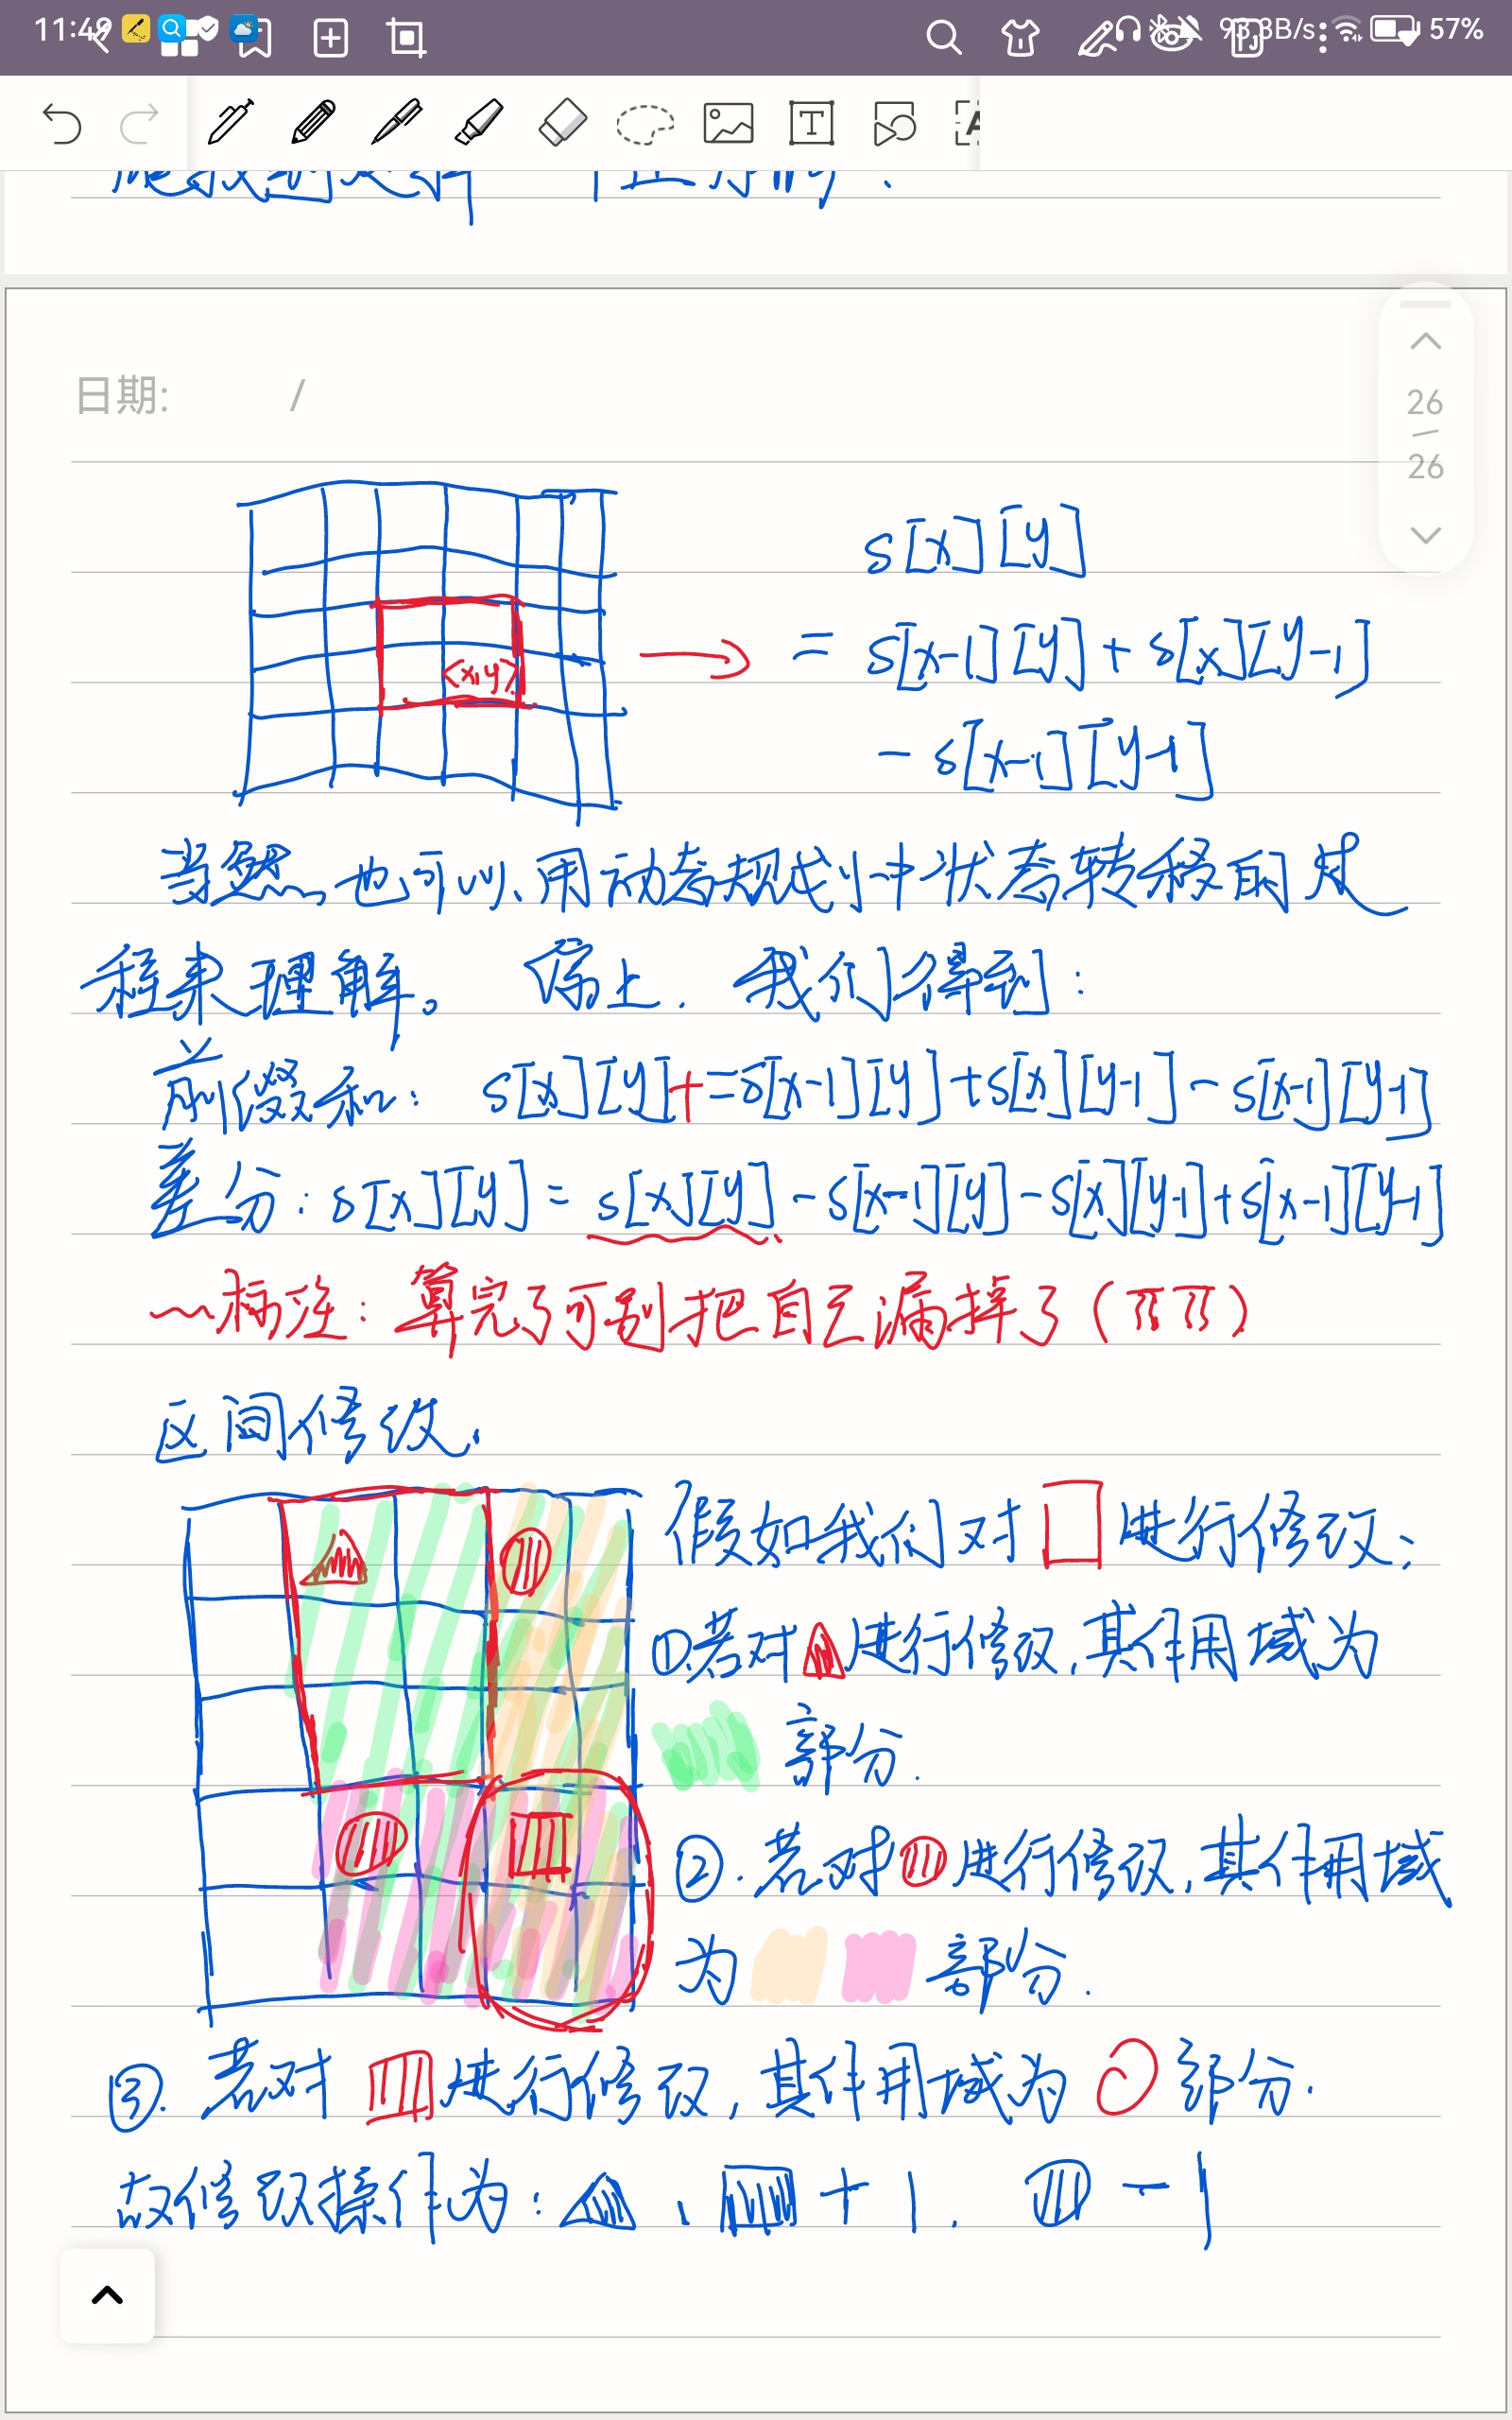 11:49 93.3B/s 57%
日期: /
26
26
<x,y>
s[x][y]
= s[x-1][y] + s[x][y-1]
- s[x-1][y-1]
当然,也可以用动态规划中状态转移的过
程来理解。 综上,我们得到:
前缀和: s[x][y]+=s[x-1][y]+s[x][y-1]-s[x-1][y-1]
差分: s[x][y] = s[x][y]-s[x-1][y]-s[x][y-1]+s[x-1][y-1]
标注: 算完了可别把自己漏掉了(TT TT)
区间修改.
假如我们对 进行修改:
①.若对 进行修改,其作用域为
部分.
②.若对 进行修改,其作用域
为 部分.
③.若对 进行修改,其作用域为 部分.
故修改操作为: 、 +1. -1